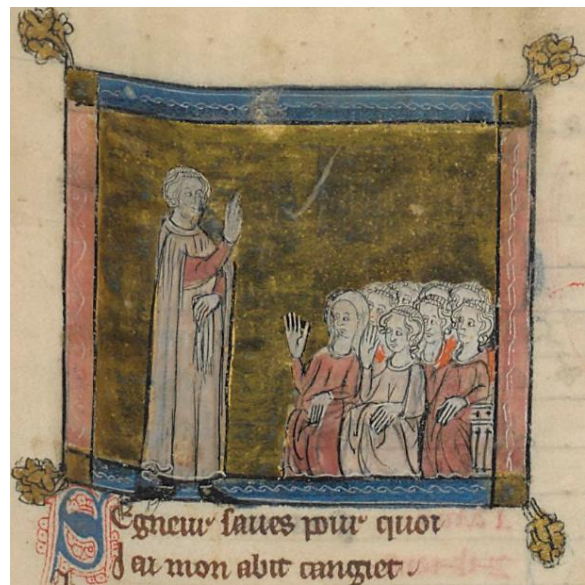 Segneur saues pour quoi
J ai mon abit cangiet.